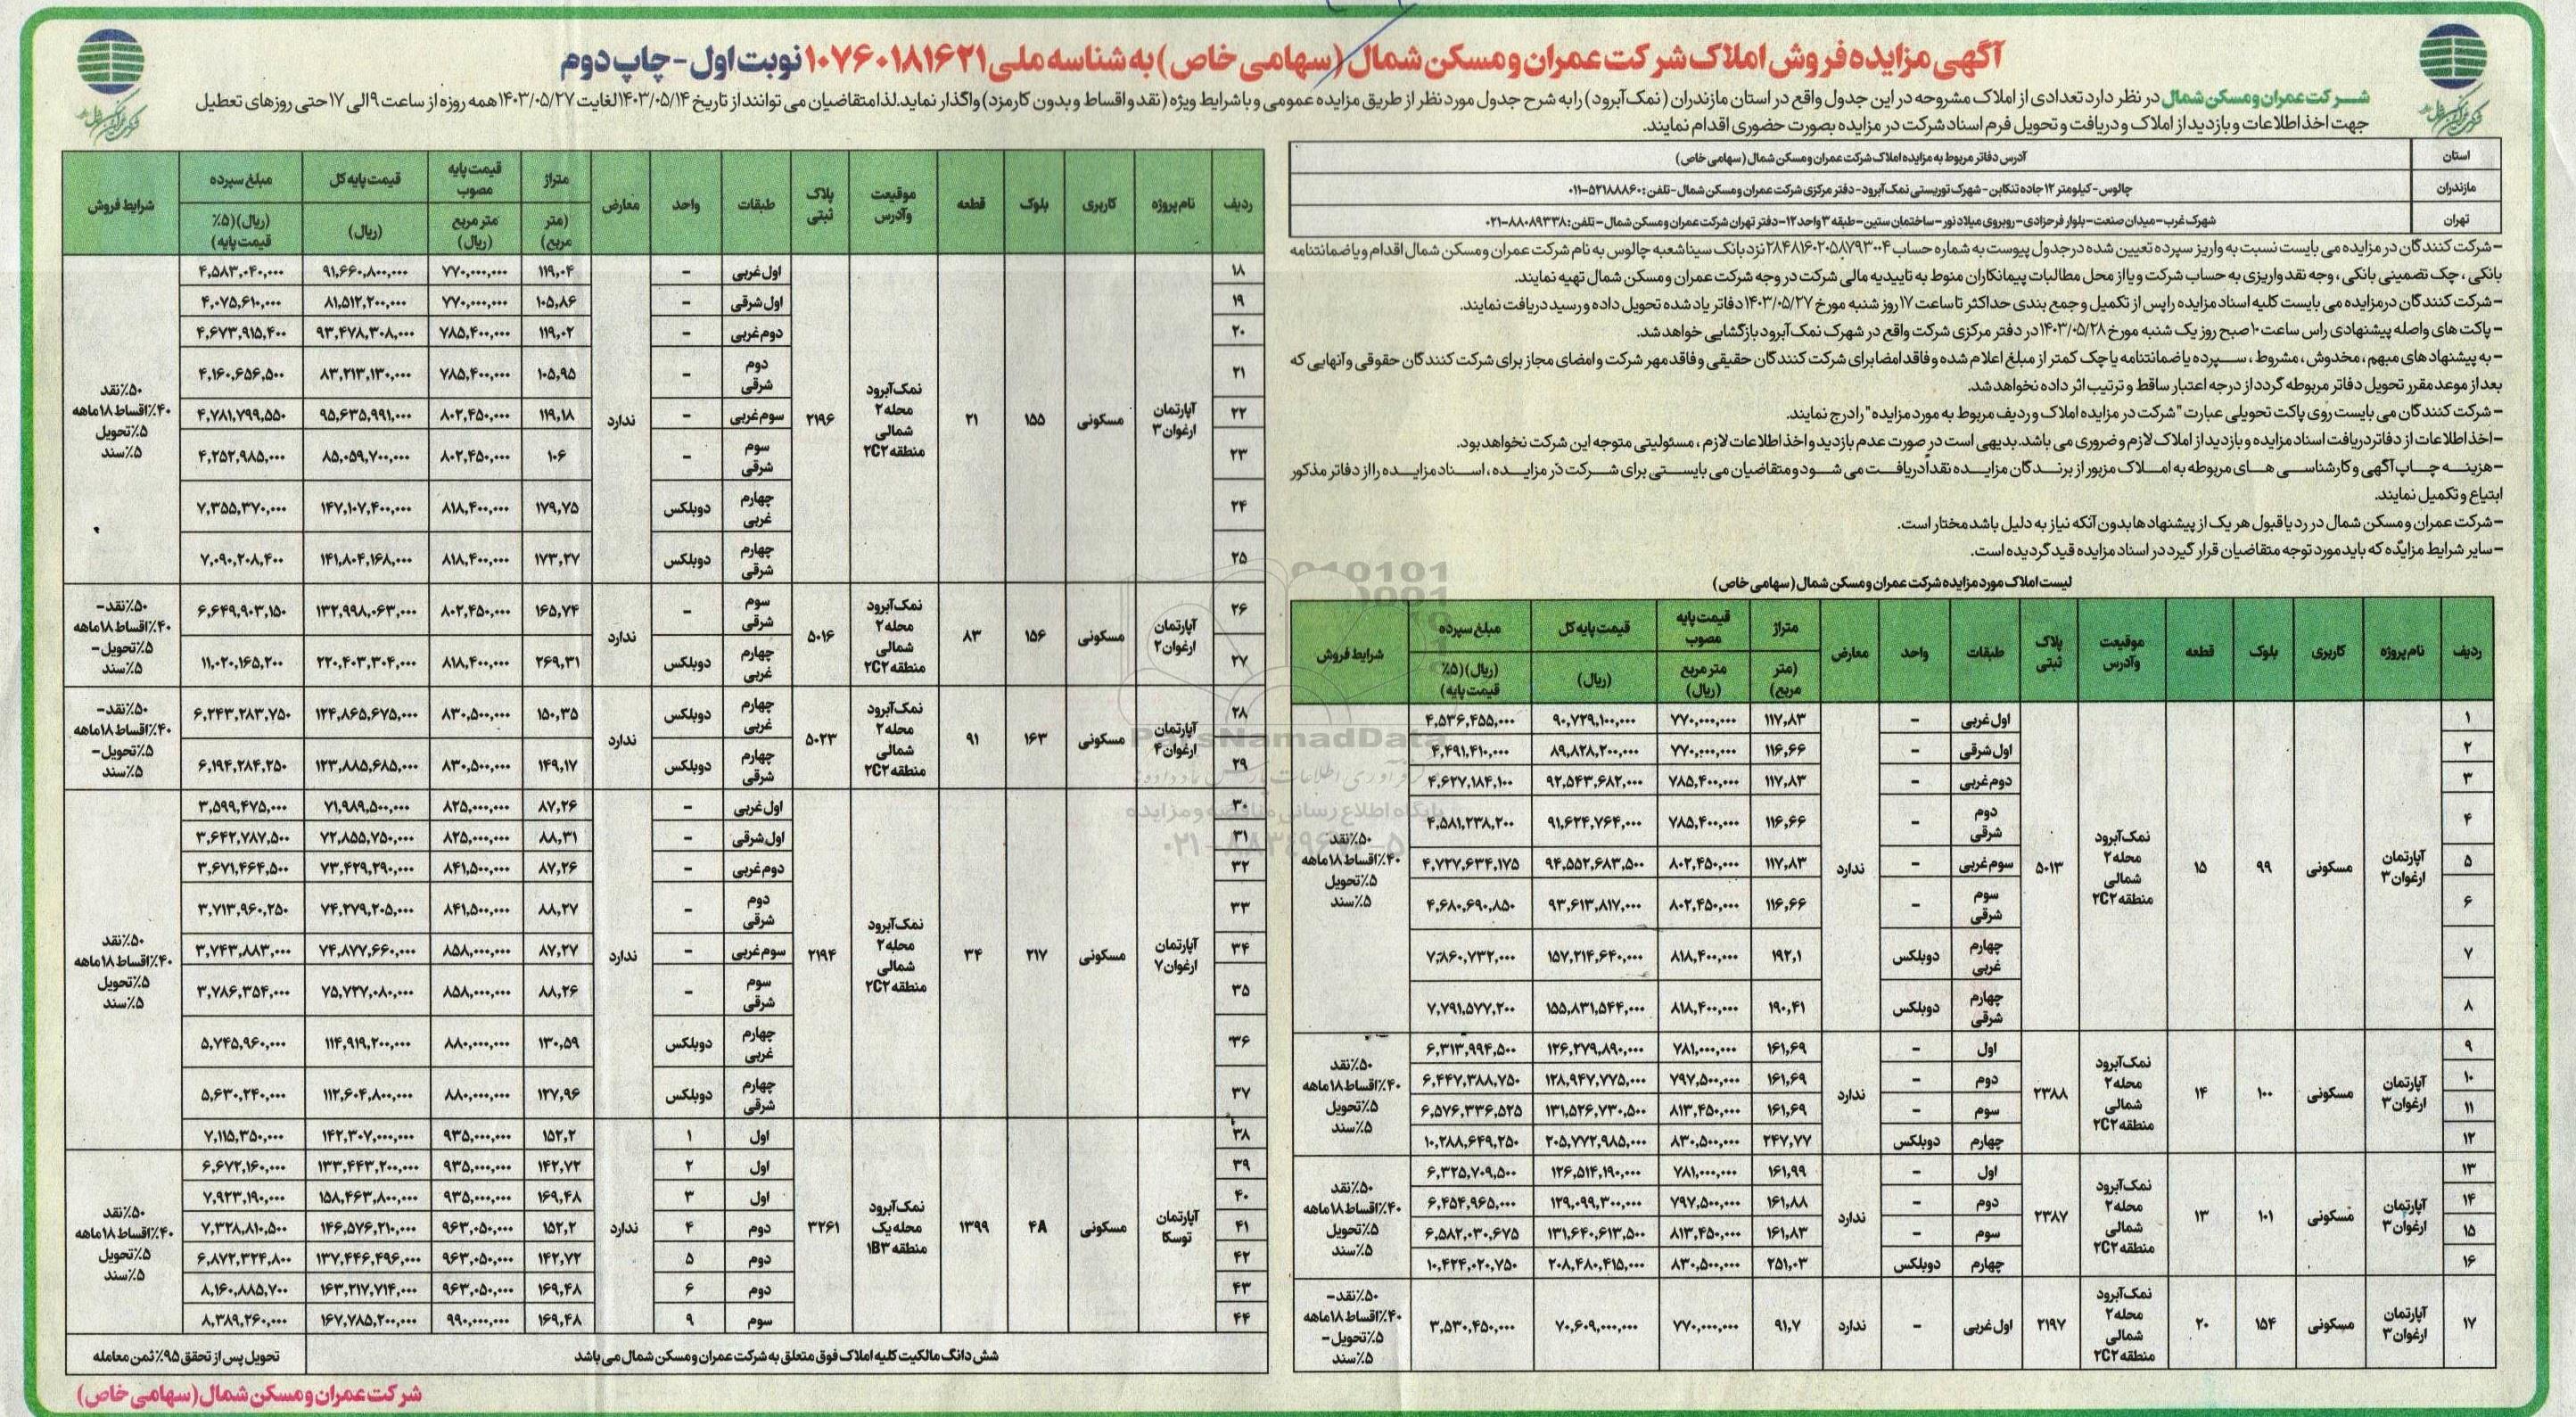 آگهی مزایده فروش املاک شرکت عمران و مسکن شمال (سهامی خاص) به شناسه ملی ۱۰۷۶۰۱۸۱۶۲۱ نوبت اول - چاپ دوم
شرکت عمران و مسکن شمال در نظر دارد تعدادی از املاک مشروحه در این جدول واقع در استان مازندران (نمک آبرود) را به شرح جدول مورد نظر از طریق مزایده عمومی و با شرایط ویژه (نقد و اقساط و بدون کارمزد) واگذار نماید. لذا متقاضیان می توانند از تاریخ ۱۴۰۳/۰۵/۱۴ لغایت ۱۴۰۳/۰۵/۲۷ همه روزه از ساعت ۹ الی ۱۷ حتی روزهای تعطیل
جهت اخذ اطلاعات و بازدید از املاک و دریافت و تحویل فرم اسناد شرکت در مزایده بصورت حضوری اقدام نمایند.
استان | آدرس دفاتر مربوط به مزایده املاک شرکت عمران و مسکن شمال (سهامی خاص)
مازندران | چالوس - کیلومتر ۱۲ جاده تنکابن - شهرک توریستی نمک آبرود - دفتر مرکزی شرکت عمران و مسکن شمال - تلفن: ۵۲۱۸۸۸۶۰-۰۱۱
تهران | شهرک غرب - میدان صنعت - بلوار فرحزادی - روبروی میلاد نور - ساختمان ستین - طبقه ۳ واحد ۱۲ - دفتر تهران شرکت عمران و مسکن شمال - تلفن: ۸۸۰۸۹۳۳۸-۰۲۱
- شرکت کنندگان در مزایده می بایست نسبت به واریز سپرده تعیین شده در جدول پیوست به شماره حساب ۲۸۴۸۱۶۰۲۰۵۸۷۹۳۰۰۴ نزد بانک سینا شعبه چالوس به نام شرکت عمران و مسکن شمال اقدام و یا ضمانتنامه
بانکی، چک تضمینی بانکی، وجه نقد واریزی به حساب شرکت و یا از محل مطالبات پیمانکاران منوط به تاییدیه مالی شرکت در وجه شرکت عمران و مسکن شمال تهیه نمایند.
- شرکت کنندگان در مزایده می بایست کلیه اسناد مزایده را پس از تکمیل و جمع بندی حداکثر تا ساعت ۱۷ روز شنبه مورخ ۱۴۰۳/۰۵/۲۷ دفاتر یاد شده تحویل داده و رسید دریافت نمایند.
- پاکت های واصله پیشنهادی راس ساعت ۱۰ صبح روز یک شنبه مورخ ۱۴۰۳/۰۵/۲۸ در دفتر مرکزی شرکت واقع در شهرک نمک آبرود بازگشایی خواهد شد.
- به پیشنهادهای مبهم، مخدوش، مشروط، سپرده یا ضمانتنامه یا چک کمتر از مبلغ اعلام شده و فاقد امضا برای شرکت کنندگان حقیقی و فاقد مهر شرکت و امضای مجاز برای شرکت کنندگان حقوقی و آنهایی که
بعد از موعد مقرر تحویل دفاتر مربوطه گردد از درجه اعتبار ساقط و ترتیب اثر داده نخواهد شد.
- شرکت کنندگان می بایست روی پاکت تحویلی عبارت "شرکت در مزایده املاک و ردیف مربوط به مورد مزایده" را درج نمایند.
- اخذ اطلاعات از دفاتر دریافت اسناد مزایده و بازدید از املاک لازم و ضروری می باشد. بدیهی است در صورت عدم بازدید و اخذ اطلاعات لازم، مسئولیتی متوجه این شرکت نخواهد بود.
- هزینه چاپ آگهی و کارشناسی های مربوطه به املاک مزبور از برندگان مزایده نقداً دریافت می شود و متقاضیان می بایستی برای شرکت در مزایده، اسناد مزایده را از دفاتر مذکور
ابتیاع و تکمیل نمایند.
- شرکت عمران و مسکن شمال در رد یا قبول هر یک از پیشنهادها بدون آنکه نیاز به دلیل باشد مختار است.
- سایر شرایط مزایده که باید مورد توجه متقاضیان قرار گیرد در اسناد مزایده قید گردیده است.
لیست املاک مورد مزایده شرکت عمران و مسکن شمال (سهامی خاص)
ردیف | نام پروژه | کاربری | بلوک | قطعه | موقیعت وآدرس | پلاک ثبتی | طبقات | واحد | معارض | متراژ (متر مربع) | قیمت پایه مصوب متر مربع (ریال) | قیمت پایه کل (ریال) | مبلغ سپرده (ریال) (۵٪ قیمت پایه) | شرایط فروش
آپارتمان ارغوان ۳ | مسکونی | ۹۹ | ۱۵ | نمک آبرود محله ۲ شمالی منطقه ۲C۲ | ۵۰۱۳ | ندارد | ۵۰٪نقد ۴۰٪اقساط ۱۸ ماهه ۵٪تحویل ۵٪سند
۱ | اول غربی | - | ۱۱۷,۸۳ | ۷۷۰,۰۰۰,۰۰۰ | ۹۰,۷۲۹,۱۰۰,۰۰۰ | ۴,۵۳۶,۴۵۵,۰۰۰
۲ | اول شرقی | - | ۱۱۶,۶۶ | ۷۷۰,۰۰۰,۰۰۰ | ۸۹,۸۲۸,۲۰۰,۰۰۰ | ۴,۴۹۱,۴۱۰,۰۰۰
۳ | دوم غربی | - | ۱۱۷,۸۳ | ۷۸۵,۴۰۰,۰۰۰ | ۹۲,۵۴۳,۶۸۲,۰۰۰ | ۴,۶۲۷,۱۸۴,۱۰۰
۴ | دوم شرقی | - | ۱۱۶,۶۶ | ۷۸۵,۴۰۰,۰۰۰ | ۹۱,۶۲۴,۷۶۴,۰۰۰ | ۴,۵۸۱,۲۳۸,۲۰۰
۵ | سوم غربی | - | ۱۱۷,۸۳ | ۸۰۲,۴۵۰,۰۰۰ | ۹۴,۵۵۲,۶۸۳,۵۰۰ | ۴,۷۲۷,۶۳۴,۱۷۵
۶ | سوم شرقی | - | ۱۱۶,۶۶ | ۸۰۲,۴۵۰,۰۰۰ | ۹۳,۶۱۳,۸۱۷,۰۰۰ | ۴,۶۸۰,۶۹۰,۸۵۰
۷ | چهارم غربی | دوبلکس | ۱۹۲,۱ | ۸۱۸,۴۰۰,۰۰۰ | ۱۵۷,۲۱۴,۶۴۰,۰۰۰ | ۷,۸۶۰,۷۳۲,۰۰۰
۸ | چهارم شرقی | دوبلکس | ۱۹۰,۴۱ | ۸۱۸,۴۰۰,۰۰۰ | ۱۵۵,۸۳۱,۵۴۴,۰۰۰ | ۷,۷۹۱,۵۷۷,۲۰۰
آپارتمان ارغوان ۳ | مسکونی | ۱۰۰ | ۱۴ | نمک آبرود محله ۲ شمالی منطقه ۲C۲ | ۲۳۸۸ | ندارد | ۵۰٪نقد ۴۰٪اقساط ۱۸ ماهه ۵٪تحویل ۵٪سند
۹ | اول | - | ۱۶۱,۶۹ | ۷۸۱,۰۰۰,۰۰۰ | ۱۲۶,۲۷۹,۸۹۰,۰۰۰ | ۶,۳۱۳,۹۹۴,۵۰۰
۱۰ | دوم | - | ۱۶۱,۶۹ | ۷۹۷,۵۰۰,۰۰۰ | ۱۲۸,۹۴۷,۷۷۵,۰۰۰ | ۶,۴۴۷,۳۸۸,۷۵۰
۱۱ | سوم | - | ۱۶۱,۶۹ | ۸۱۳,۴۵۰,۰۰۰ | ۱۳۱,۵۲۶,۷۳۰,۵۰۰ | ۶,۵۷۶,۳۳۶,۵۲۵
۱۲ | چهارم | دوبلکس | ۲۴۷,۷۷ | ۸۳۰,۵۰۰,۰۰۰ | ۲۰۵,۷۷۲,۹۸۵,۰۰۰ | ۱۰,۲۸۸,۶۴۹,۲۵۰
آپارتمان ارغوان ۳ | مسکونی | ۱۰۱ | ۱۳ | نمک آبرود محله ۲ شمالی منطقه ۲C۲ | ۲۳۸۷ | ندارد | ۵۰٪نقد ۴۰٪اقساط ۱۸ ماهه ۵٪تحویل ۵٪سند
۱۳ | اول | - | ۱۶۱,۹۹ | ۷۸۱,۰۰۰,۰۰۰ | ۱۲۶,۵۱۴,۱۹۰,۰۰۰ | ۶,۳۲۵,۷۰۹,۵۰۰
۱۴ | دوم | - | ۱۶۱,۸۸ | ۷۹۷,۵۰۰,۰۰۰ | ۱۲۹,۰۹۹,۳۰۰,۰۰۰ | ۶,۴۵۴,۹۶۵,۰۰۰
۱۵ | سوم | - | ۱۶۱,۸۳ | ۸۱۳,۴۵۰,۰۰۰ | ۱۳۱,۶۴۰,۶۱۳,۵۰۰ | ۶,۵۸۲,۰۳۰,۶۷۵
۱۶ | چهارم | دوبلکس | ۲۵۱,۰۳ | ۸۳۰,۵۰۰,۰۰۰ | ۲۰۸,۴۸۰,۴۱۵,۰۰۰ | ۱۰,۴۲۴,۰۲۰,۷۵۰
۱۷ | آپارتمان ارغوان ۳ | مسکونی | ۱۵۴ | ۲۰ | نمک آبرود محله ۲ شمالی منطقه ۲C۲ | ۲۱۹۷ | اول غربی | - | ندارد | ۹۱,۷ | ۷۷۰,۰۰۰,۰۰۰ | ۷۰,۶۰۹,۰۰۰,۰۰۰ | ۳,۵۳۰,۴۵۰,۰۰۰ | ۵۰٪نقد- ۴۰٪اقساط ۱۸ ماهه ۵٪تحویل- ۵٪سند
ردیف | نام پروژه | کاربری | بلوک | قطعه | موقیعت وآدرس | پلاک ثبتی | طبقات | واحد | معارض | متراژ (متر مربع) | قیمت پایه مصوب متر مربع (ریال) | قیمت پایه کل (ریال) | مبلغ سپرده (ریال) (۵٪ قیمت پایه) | شرایط فروش
آپارتمان ارغوان ۳ | مسکونی | ۱۵۵ | ۲۱ | نمک آبرود محله ۲ شمالی منطقه ۲C۲ | ۲۱۹۶ | ندارد | ۵۰٪نقد ۴۰٪اقساط ۱۸ ماهه ۵٪تحویل ۵٪سند
۱۸ | اول غربی | - | ۱۱۹,۰۴ | ۷۷۰,۰۰۰,۰۰۰ | ۹۱,۶۶۰,۸۰۰,۰۰۰ | ۴,۵۸۳,۰۴۰,۰۰۰
۱۹ | اول شرقی | - | ۱۰۵,۸۶ | ۷۷۰,۰۰۰,۰۰۰ | ۸۱,۵۱۲,۲۰۰,۰۰۰ | ۴,۰۷۵,۶۱۰,۰۰۰
۲۰ | دوم غربی | - | ۱۱۹,۰۲ | ۷۸۵,۴۰۰,۰۰۰ | ۹۳,۴۷۸,۳۰۸,۰۰۰ | ۴,۶۷۳,۹۱۵,۴۰۰
۲۱ | دوم شرقی | - | ۱۰۵,۹۵ | ۷۸۵,۴۰۰,۰۰۰ | ۸۳,۲۱۳,۱۳۰,۰۰۰ | ۴,۱۶۰,۶۵۶,۵۰۰
۲۲ | سوم غربی | - | ۱۱۹,۱۸ | ۸۰۲,۴۵۰,۰۰۰ | ۹۵,۶۳۵,۹۹۱,۰۰۰ | ۴,۷۸۱,۷۹۹,۵۵۰
۲۳ | سوم شرقی | - | ۱۰۶ | ۸۰۲,۴۵۰,۰۰۰ | ۸۵,۰۵۹,۷۰۰,۰۰۰ | ۴,۲۵۲,۹۸۵,۰۰۰
۲۴ | چهارم غربی | دوبلکس | ۱۷۹,۷۵ | ۸۱۸,۴۰۰,۰۰۰ | ۱۴۷,۱۰۷,۴۰۰,۰۰۰ | ۷,۳۵۵,۳۷۰,۰۰۰
۲۵ | چهارم شرقی | دوبلکس | ۱۷۳,۲۷ | ۸۱۸,۴۰۰,۰۰۰ | ۱۴۱,۸۰۴,۱۶۸,۰۰۰ | ۷,۰۹۰,۲۰۸,۴۰۰
آپارتمان ارغوان ۲ | مسکونی | ۱۵۶ | ۸۳ | نمک آبرود محله ۲ شمالی منطقه ۲C۲ | ۵۰۱۶ | ندارد | ۵۰٪نقد- ۴۰٪اقساط ۱۸ ماهه ۵٪تحویل- ۵٪سند
۲۶ | سوم شرقی | - | ۱۶۵,۷۴ | ۸۰۲,۴۵۰,۰۰۰ | ۱۳۲,۹۹۸,۰۶۳,۰۰۰ | ۶,۶۴۹,۹۰۳,۱۵۰
۲۷ | چهارم غربی | دوبلکس | ۲۶۹,۳۱ | ۸۱۸,۴۰۰,۰۰۰ | ۲۲۰,۴۰۳,۳۰۴,۰۰۰ | ۱۱,۰۲۰,۱۶۵,۲۰۰
آپارتمان ارغوان ۴ | مسکونی | ۱۶۳ | ۹۱ | نمک آبرود محله ۲ شمالی منطقه ۲C۲ | ۵۰۲۳ | ندارد | ۵۰٪نقد- ۴۰٪اقساط ۱۸ ماهه ۵٪تحویل- ۵٪سند
۲۸ | چهارم غربی | دوبلکس | ۱۵۰,۳۵ | ۸۳۰,۵۰۰,۰۰۰ | ۱۲۴,۸۶۵,۶۷۵,۰۰۰ | ۶,۲۴۳,۲۸۳,۷۵۰
۲۹ | چهارم شرقی | دوبلکس | ۱۴۹,۱۷ | ۸۳۰,۵۰۰,۰۰۰ | ۱۲۳,۸۸۵,۶۸۵,۰۰۰ | ۶,۱۹۴,۲۸۴,۲۵۰
آپارتمان ارغوان ۷ | مسکونی | ۲۱۷ | ۳۴ | نمک آبرود محله ۲ شمالی منطقه ۲C۲ | ۲۱۹۴ | ندارد | ۵۰٪نقد ۴۰٪اقساط ۱۸ ماهه ۵٪تحویل ۵٪سند
۳۰ | اول غربی | - | ۸۷,۲۶ | ۸۲۵,۰۰۰,۰۰۰ | ۷۱,۹۸۹,۵۰۰,۰۰۰ | ۳,۵۹۹,۴۷۵,۰۰۰
۳۱ | اول شرقی | - | ۸۸,۳۱ | ۸۲۵,۰۰۰,۰۰۰ | ۷۲,۸۵۵,۷۵۰,۰۰۰ | ۳,۶۴۲,۷۸۷,۵۰۰
۳۲ | دوم غربی | - | ۸۷,۲۶ | ۸۴۱,۵۰۰,۰۰۰ | ۷۳,۴۲۹,۲۹۰,۰۰۰ | ۳,۶۷۱,۴۶۴,۵۰۰
۳۳ | دوم شرقی | - | ۸۸,۲۷ | ۸۴۱,۵۰۰,۰۰۰ | ۷۴,۲۷۹,۲۰۵,۰۰۰ | ۳,۷۱۳,۹۶۰,۲۵۰
۳۴ | سوم غربی | - | ۸۷,۲۷ | ۸۵۸,۰۰۰,۰۰۰ | ۷۴,۸۷۷,۶۶۰,۰۰۰ | ۳,۷۴۳,۸۸۳,۰۰۰
۳۵ | سوم شرقی | - | ۸۸,۲۶ | ۸۵۸,۰۰۰,۰۰۰ | ۷۵,۷۲۷,۰۸۰,۰۰۰ | ۳,۷۸۶,۳۵۴,۰۰۰
۳۶ | چهارم غربی | دوبلکس | ۱۳۰,۵۹ | ۸۸۰,۰۰۰,۰۰۰ | ۱۱۴,۹۱۹,۲۰۰,۰۰۰ | ۵,۷۴۵,۹۶۰,۰۰۰
۳۷ | چهارم شرقی | دوبلکس | ۱۲۷,۹۶ | ۸۸۰,۰۰۰,۰۰۰ | ۱۱۲,۶۰۴,۸۰۰,۰۰۰ | ۵,۶۳۰,۲۴۰,۰۰۰
آپارتمان توسکا | مسکونی | ۴A | ۱۳۹۹ | نمک آبرود محله یک منطقه ۱B۳ | ۳۲۶۱ | ندارد | ۵۰٪نقد ۴۰٪اقساط ۱۸ ماهه ۵٪تحویل ۵٪سند
۳۸ | اول | ۱ | ۱۵۲,۲ | ۹۳۵,۰۰۰,۰۰۰ | ۱۴۲,۳۰۷,۰۰۰,۰۰۰ | ۷,۱۱۵,۳۵۰,۰۰۰
۳۹ | اول | ۲ | ۱۴۲,۷۲ | ۹۳۵,۰۰۰,۰۰۰ | ۱۳۳,۴۴۳,۲۰۰,۰۰۰ | ۶,۶۷۲,۱۶۰,۰۰۰
۴۰ | اول | ۳ | ۱۶۹,۴۸ | ۹۳۵,۰۰۰,۰۰۰ | ۱۵۸,۴۶۳,۸۰۰,۰۰۰ | ۷,۹۲۳,۱۹۰,۰۰۰
۴۱ | دوم | ۴ | ۱۵۲,۲ | ۹۶۳,۰۵۰,۰۰۰ | ۱۴۶,۵۷۶,۲۱۰,۰۰۰ | ۷,۳۲۸,۸۱۰,۵۰۰
۴۲ | دوم | ۵ | ۱۴۲,۷۲ | ۹۶۳,۰۵۰,۰۰۰ | ۱۳۷,۴۴۶,۴۹۶,۰۰۰ | ۶,۸۷۲,۳۲۴,۸۰۰
۴۳ | دوم | ۶ | ۱۶۹,۴۸ | ۹۶۳,۰۵۰,۰۰۰ | ۱۶۳,۲۱۷,۷۱۴,۰۰۰ | ۸,۱۶۰,۸۸۵,۷۰۰
۴۴ | سوم | ۹ | ۱۶۹,۴۸ | ۹۹۰,۰۰۰,۰۰۰ | ۱۶۷,۷۸۵,۲۰۰,۰۰۰ | ۸,۳۸۹,۲۶۰,۰۰۰
شش دانگ مالکیت کلیه املاک فوق متعلق به شرکت عمران و مسکن شمال می باشد | تحویل پس از تحقق ۹۵٪ ثمن معامله
شرکت عمران و مسکن شمال (سهامی خاص)
ParsNamadData
پایگاه اطلاع رسانی مناقصه و مزایده